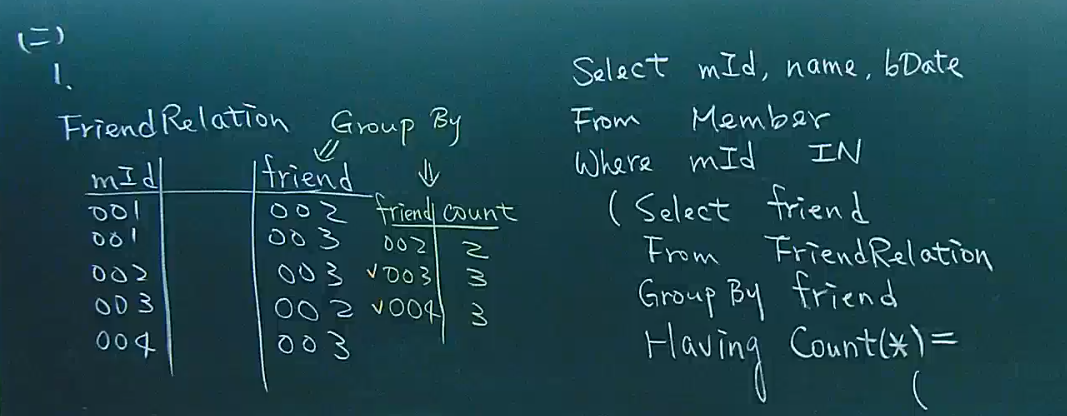 (二)
1.
FriendRelation Group By
mId friend
001 002
001 003
002 003
003 002
004 003
friend count
002 2
✓003 3
✓004 3
Select mId, name, bDate
From Member
Where mId IN
(Select friend
From FriendRelation
Group By friend
Having Count(*)=
(